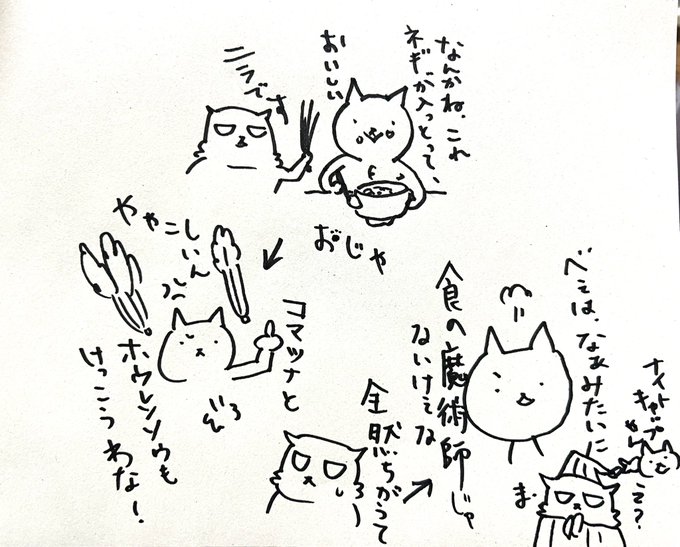 なんかね、これ
ネギが入っとって、
おいしい
ニラです
おじや
ややこしいん
コマツナと
ホウレンソウも
けっこうわな!
全然ちがうて
べえは、なあみたいに
食の魔術師じゃ
ないけえな
ナイト
キャップ
やん
え?
ま